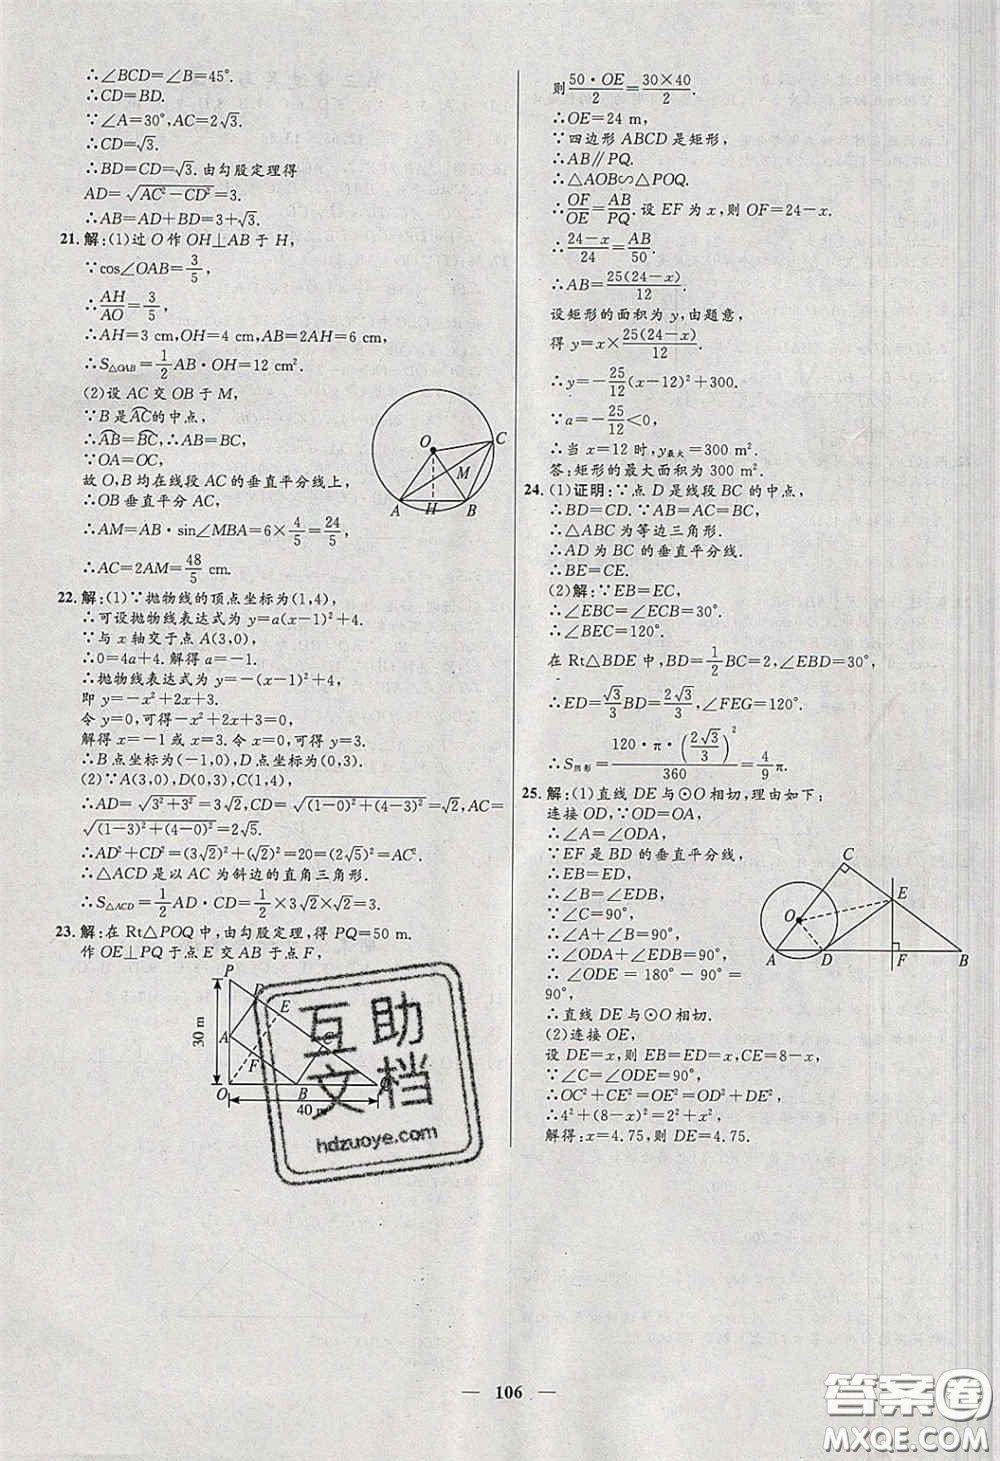 ∴∠BCD=∠B=45°.
∴CD=BD.
∵∠A=30°,AC=2√3.
∴CD=√3.
∴BD=CD=√3.由勾股定理得
AD=√(AC²-CD²)=3.
∴AB=AD+BD=3+√3.
21.解:(1)过O作OH⊥AB于H,
∵cos∠OAB=3/5,
∴AH/AO=3/5,
∴AH=3 cm,OH=4 cm,AB=2AH=6 cm,
∴S△OAB=1/2 AB·OH=12 cm².
(2)设AC交OB于M,
∵B是AC的中点,
∴AB=BC,∴AB=BC,
∵OA=OC,
故O,B均在线段AC的垂直平分线上,
∴OB垂直平分AC,
∴AM=AB·sin∠MBA=6×4/5=24/5,
∴AC=2AM=48/5 cm.
O
C
M
A
H
B
22.解:(1)∵抛物线的顶点坐标为(1,4),
∴可设抛物线表达式为y=a(x-1)²+4.
∵与x轴交于点A(3,0),
∴0=4a+4.解得a=-1.
∴抛物线表达式为y=-(x-1)²+4,
即y=-x²+2x+3.
令y=0,可得-x²+2x+3=0.
解得x=-1或x=3.令x=0,可得y=3.
∴B点坐标为(-1,0),D点坐标为(0,3).
(2)∵A(3,0),D(0,3),C(1,4),
∴AD=√(3²+3²)=3√2,CD=√((1-0)²+(4-3)²)=√2,AC=
√((1-3)²+(4-0)²)=2√5.
∴AD²+CD²=(3√2)²+(√2)²=20=(2√5)²=AC².
∴△ACD是以AC为斜边的直角三角形.
∴S△ACD=1/2 AD·CD=1/2×3√2×√2=3.
23.解:在Rt△POQ中,由勾股定理,得PQ=50 m.
作OE⊥PQ于点E交AB于点F,
P
D
E
30 m
A
F
O
B
40 m
互助
文档
hdzuoye.com
则 50·OE/2=30×40/2.
∴OE=24 m,
∵四边形ABCD是矩形,
∴AB∥PQ.
∴△AOB∽△POQ.
∴OF/OE=AB/PQ.设EF为x,则OF=24-x.
∴(24-x)/24=AB/50.
∴AB=25(24-x)/12.
设矩形的面积为y,由题意,
得y=x×25(24-x)/12.
∴y=-25/12(x-12)²+300.
∵a=-25/12<0,
∴当x=12时,y最大=300 m².
答:矩形的最大面积为300 m².
24.(1)证明:∵点D是线段BC的中点,
∴BD=CD.∵AB=AC=BC,
∴△ABC为等边三角形.
∴AD为BC的垂直平分线.
∴BE=CE.
(2)解:∵EB=EC,
∴∠EBC=∠ECB=30°,
∴∠BEC=120°.
在Rt△BDE中,BD=1/2 BC=2,∠EBD=30°,
∴ED=√3/3 BD=2√3/3,∠FEG=120°.
∴S扇形=120·π·(2√3/3)²/360=4/9 π.
25.解:(1)直线DE与⊙O相切,理由如下:
连接OD,∵OD=OA,
∴∠A=∠ODA,
∵EF是BD的垂直平分线,
∴EB=ED,
∴∠B=∠EDB,
∵∠C=90°,
∴∠A+∠B=90°,
∴∠ODA+∠EDB=90°,
∴∠ODE=180°-90°=
90°,
∴直线DE与⊙O相切.
(2)连接OE,
设DE=x,则EB=ED=x,CE=8-x,
∵∠C=∠ODE=90°,
∴OC²+CE²=OE²=OD²+DE²,
∴4²+(8-x)²=2²+x²,
解得:x=4.75,则DE=4.75.
C
E
O
A
D
F
B
— 106 —
答案圈
MXQE.COM